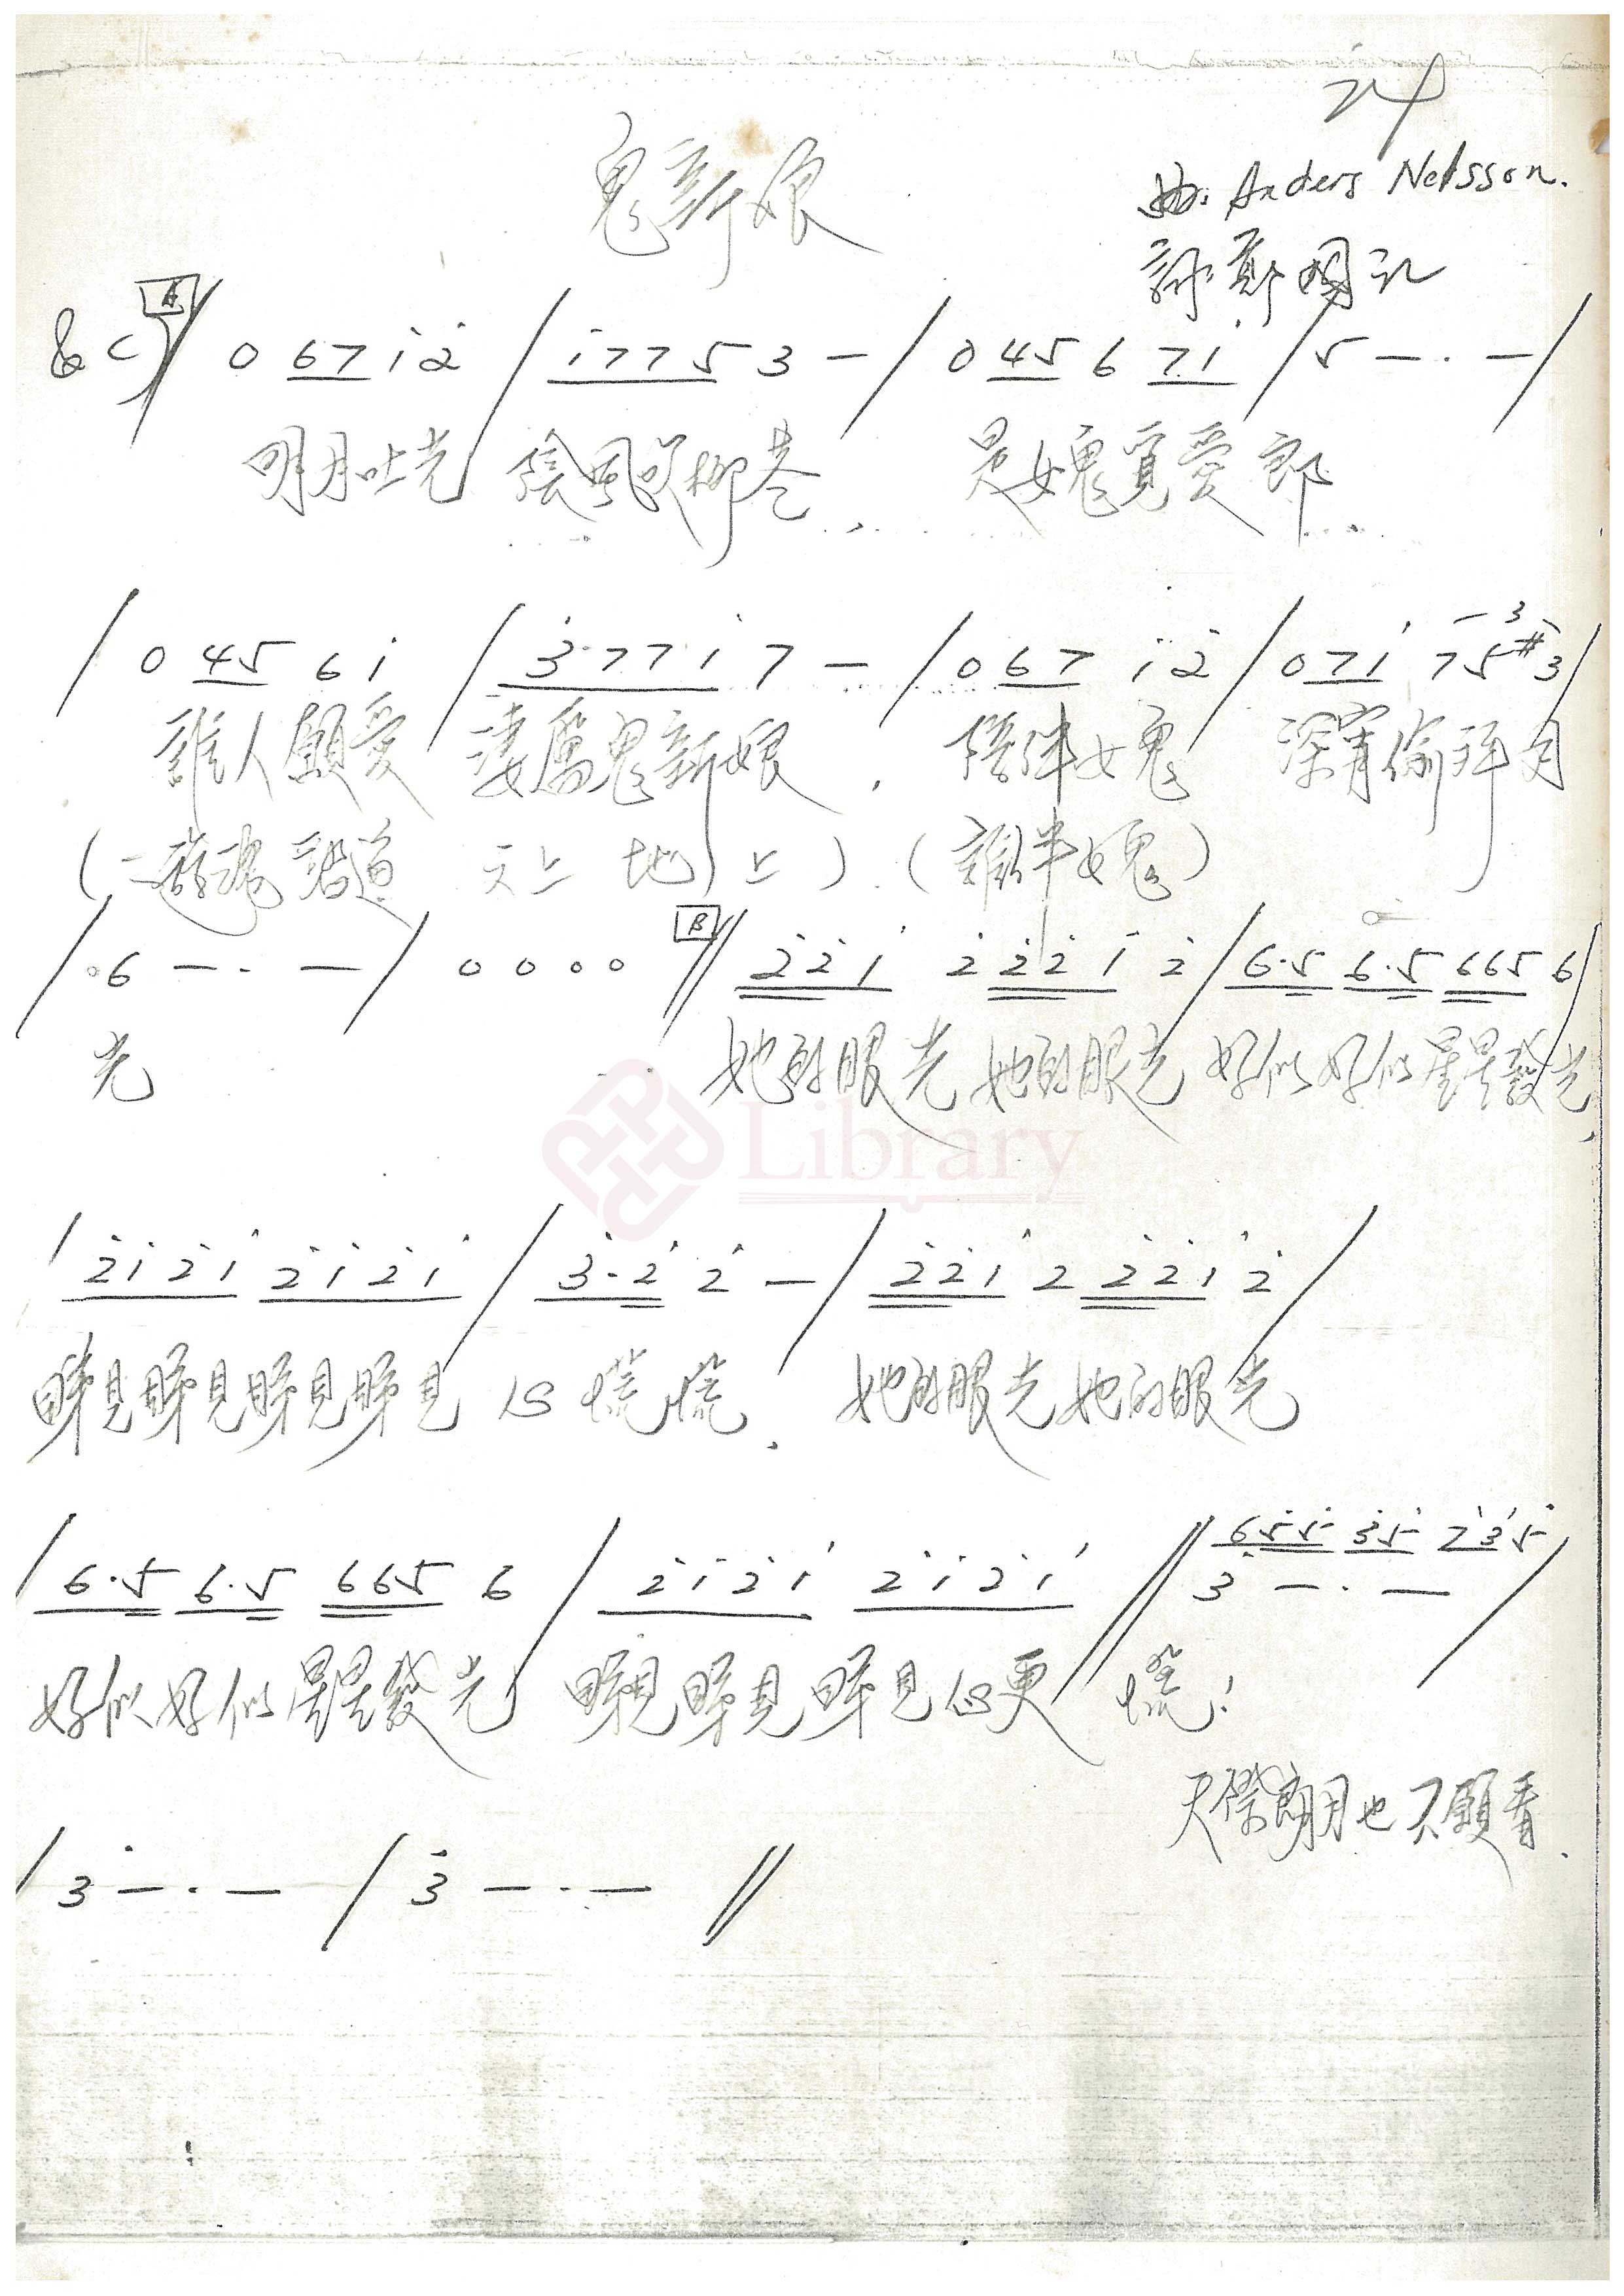 24
鬼新娘
曲: Anders Nelsson.
詞: 鄭國江
C A // 0 67 1̇ 2̇ / 1̇775 3 — / 0 45 6 71̇ / 5 — · — /
明月吐光 陰風吹柳巷 是女鬼覓愛郎
/ 0 45 6 1̇ / 3̇·771̇ 7 — / 0 67 1̇ 2̇ / 071̇ 75#3 /
誰人願愛 淒厲鬼新娘, 陪伴女鬼 深宵偷拜月
(遊魂踏遍 天上 地上) (誰伴女鬼)
/ 6 — · — / 0 0 0 0 B // 2̇2̇1̇ 2̇ 2̇2̇1̇ 2̇ / 6·5 6·5 665 6 /
光 她的眼光她的眼光 好似好似星星發光,
/ 2̇1̇2̇1̇ 2̇1̇2̇1̇ / 3̇·2̇ 2̇ — / 2̇2̇1̇ 2 2̇2̇1̇ 2̇ /
睇見睇見睇見睇見 心慌慌. 她的眼光她的眼光
/ 6·5 6·5 665 6 / 2̇1̇2̇1̇ 2̇1̇2̇1̇ // 3̇ — · — /
655 35 235
好似好似星星發光 睇見睇見睇見心更 慌!
天際朗月也不願看.
/ 3̇ — · — / 3̇ — · — //
Library